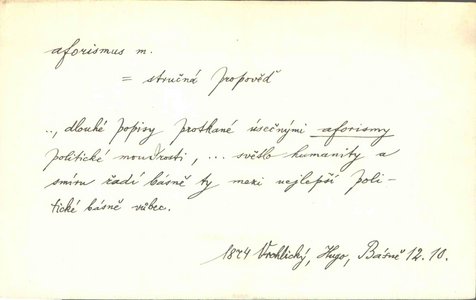 aforismus m.
= stručná propověď
.., dlouhé popisy protkané úsečnými aforismy
politické moudrosti, ... světlo humanity a
smíru řadí básně ty mezi nejlepší poli-
tické básně vůbec.
1874 Vrchlický, Hugo, Básně 12.10.